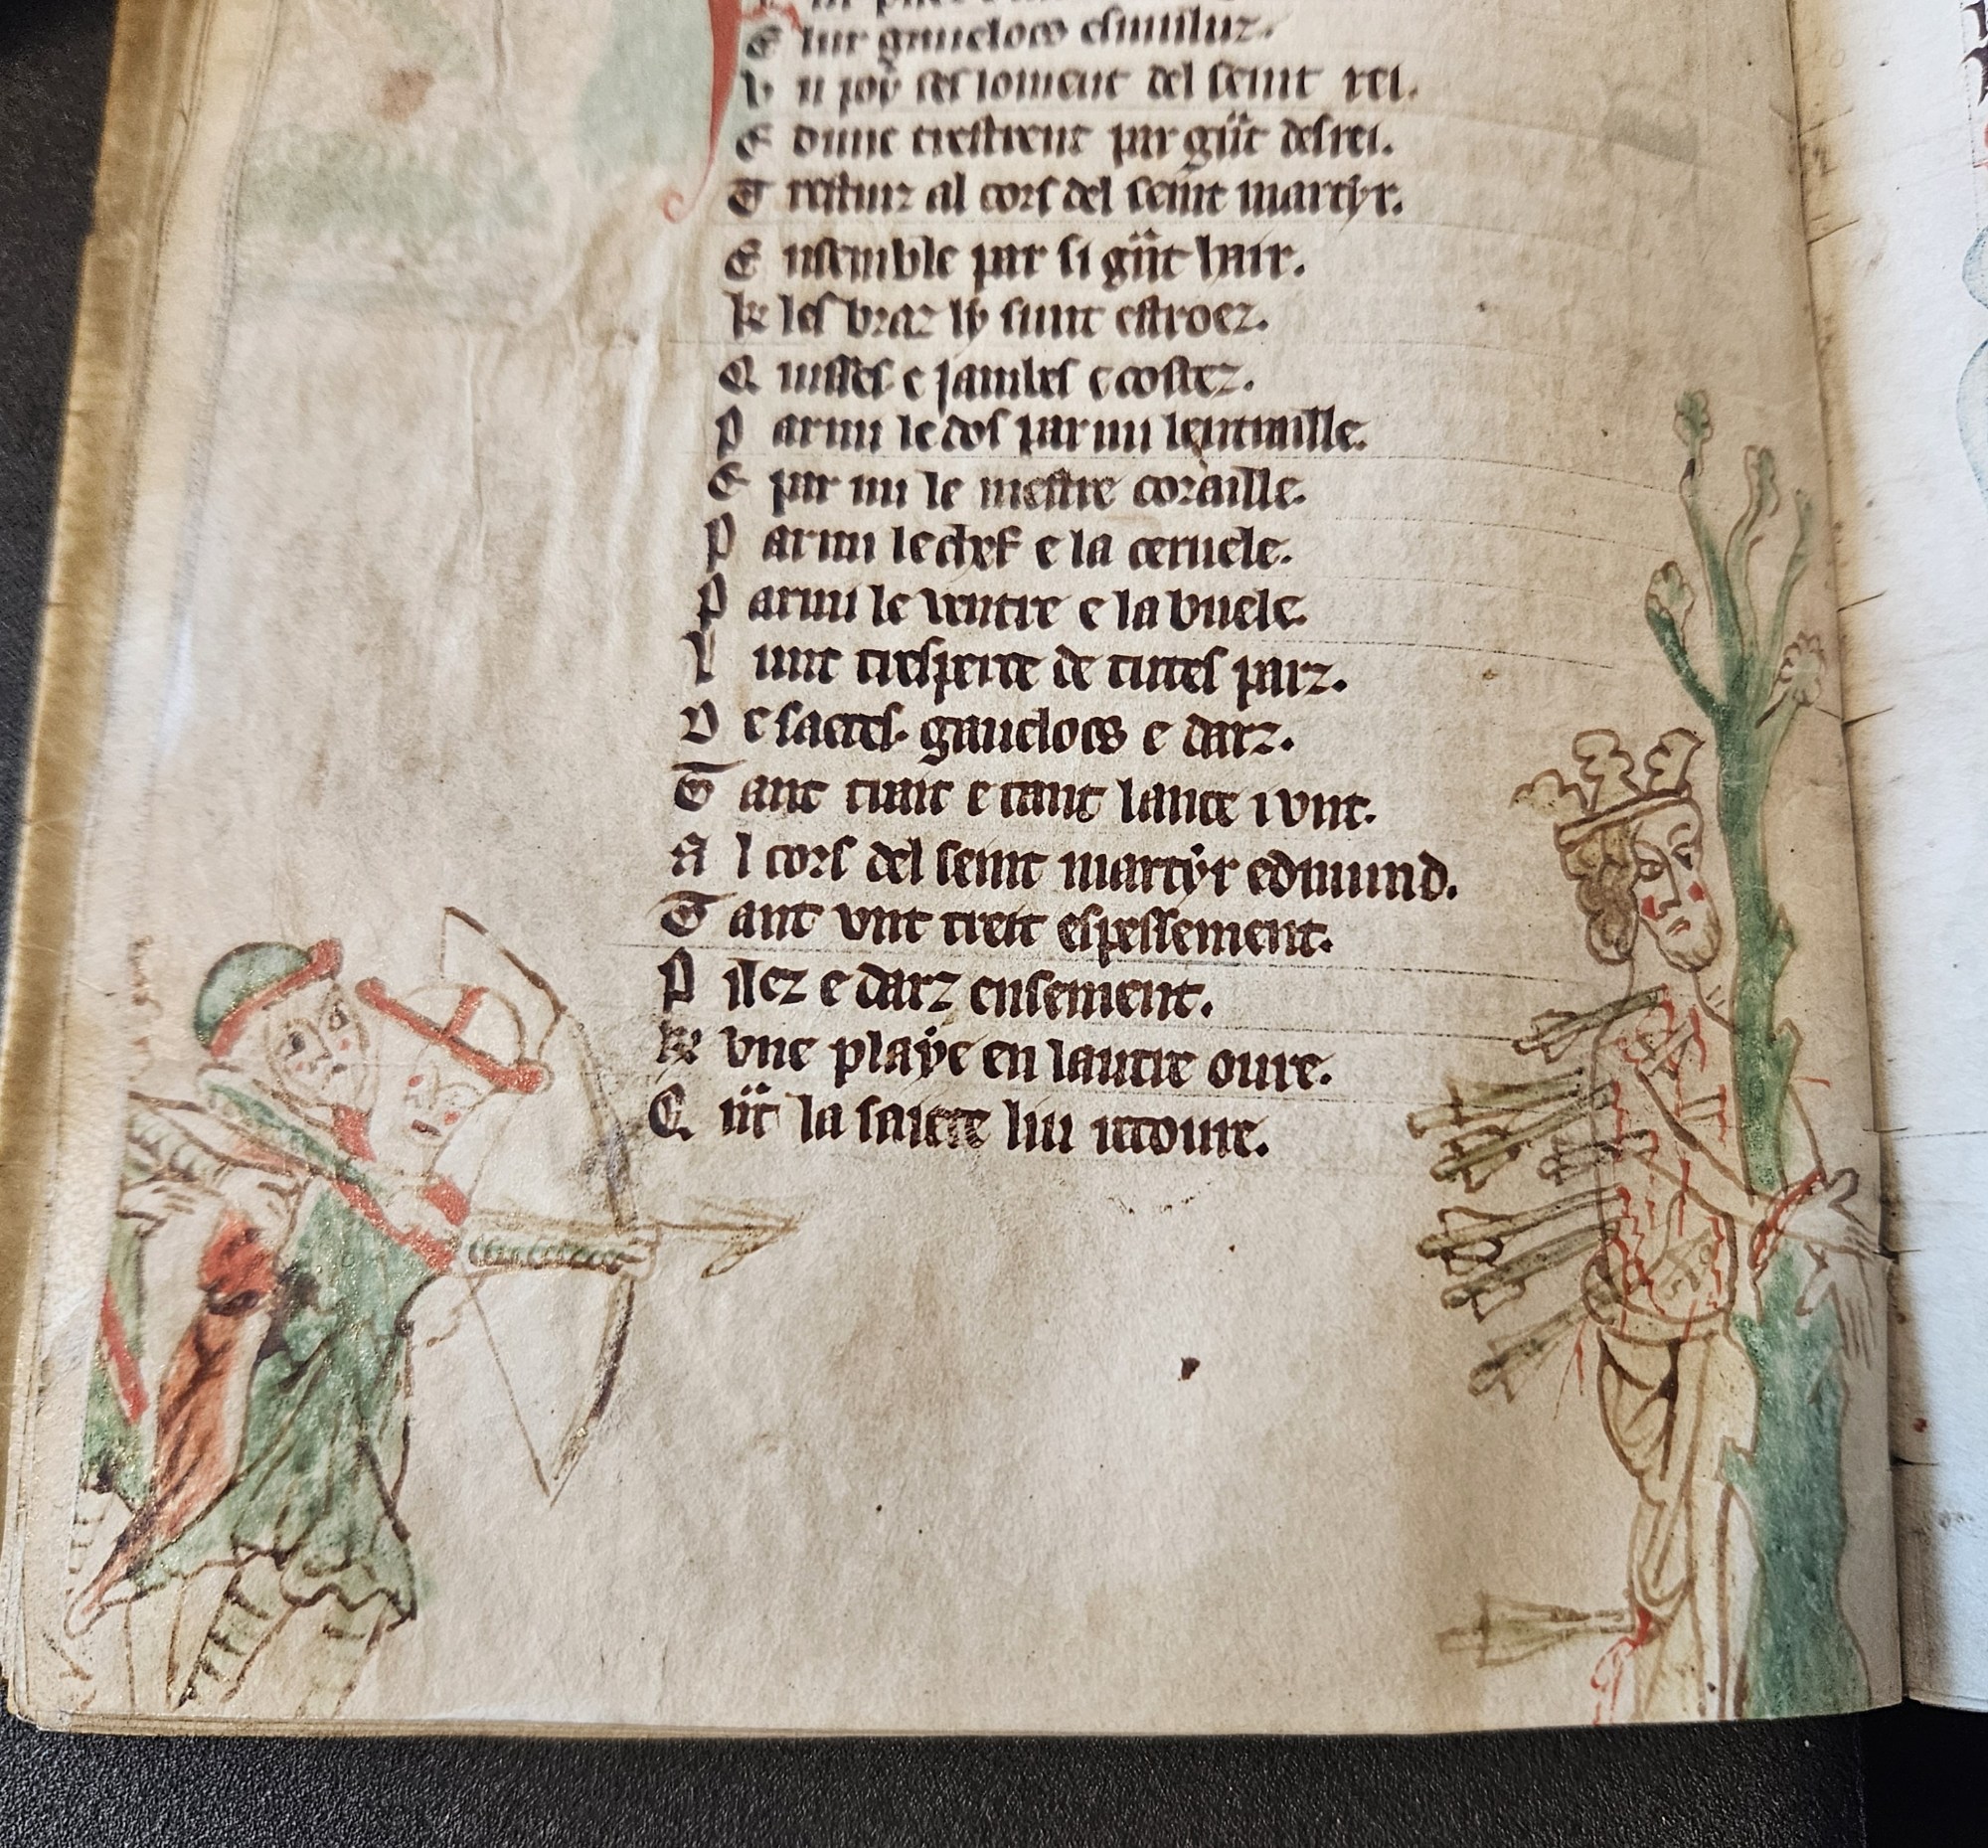 E lur gauelocs esmuluz.
E dunc trestrent par gͣnt desrei.
Trestuz al cors del seint martẏr.
Ensemble par si gͣnt haïr.
K les braz lẏ sunt estroez.
Quisses e jambes e costez.
Parmi le dos parmi lentraille.
E par mi le mestre coraille.
Parmi le chef e la ceruele.
Parmi le uentre e la buele.
Lunt tresperce de tutes parz.
De saetes. gauelocs e darz.
Tant trait e tant lance i unt.
Al cors del seint martẏr edmund.
Tant unt treit espessement.
Pilez e darz ensement.
K une plaẏe en lautre oure.
Qͣnt la saiete liu recoure.